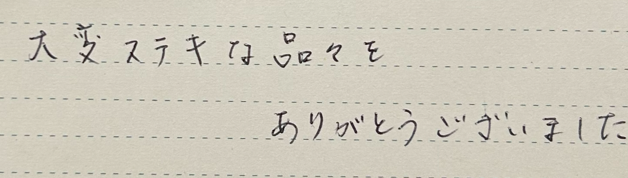 大変ステキな品々を
ありがとうございました